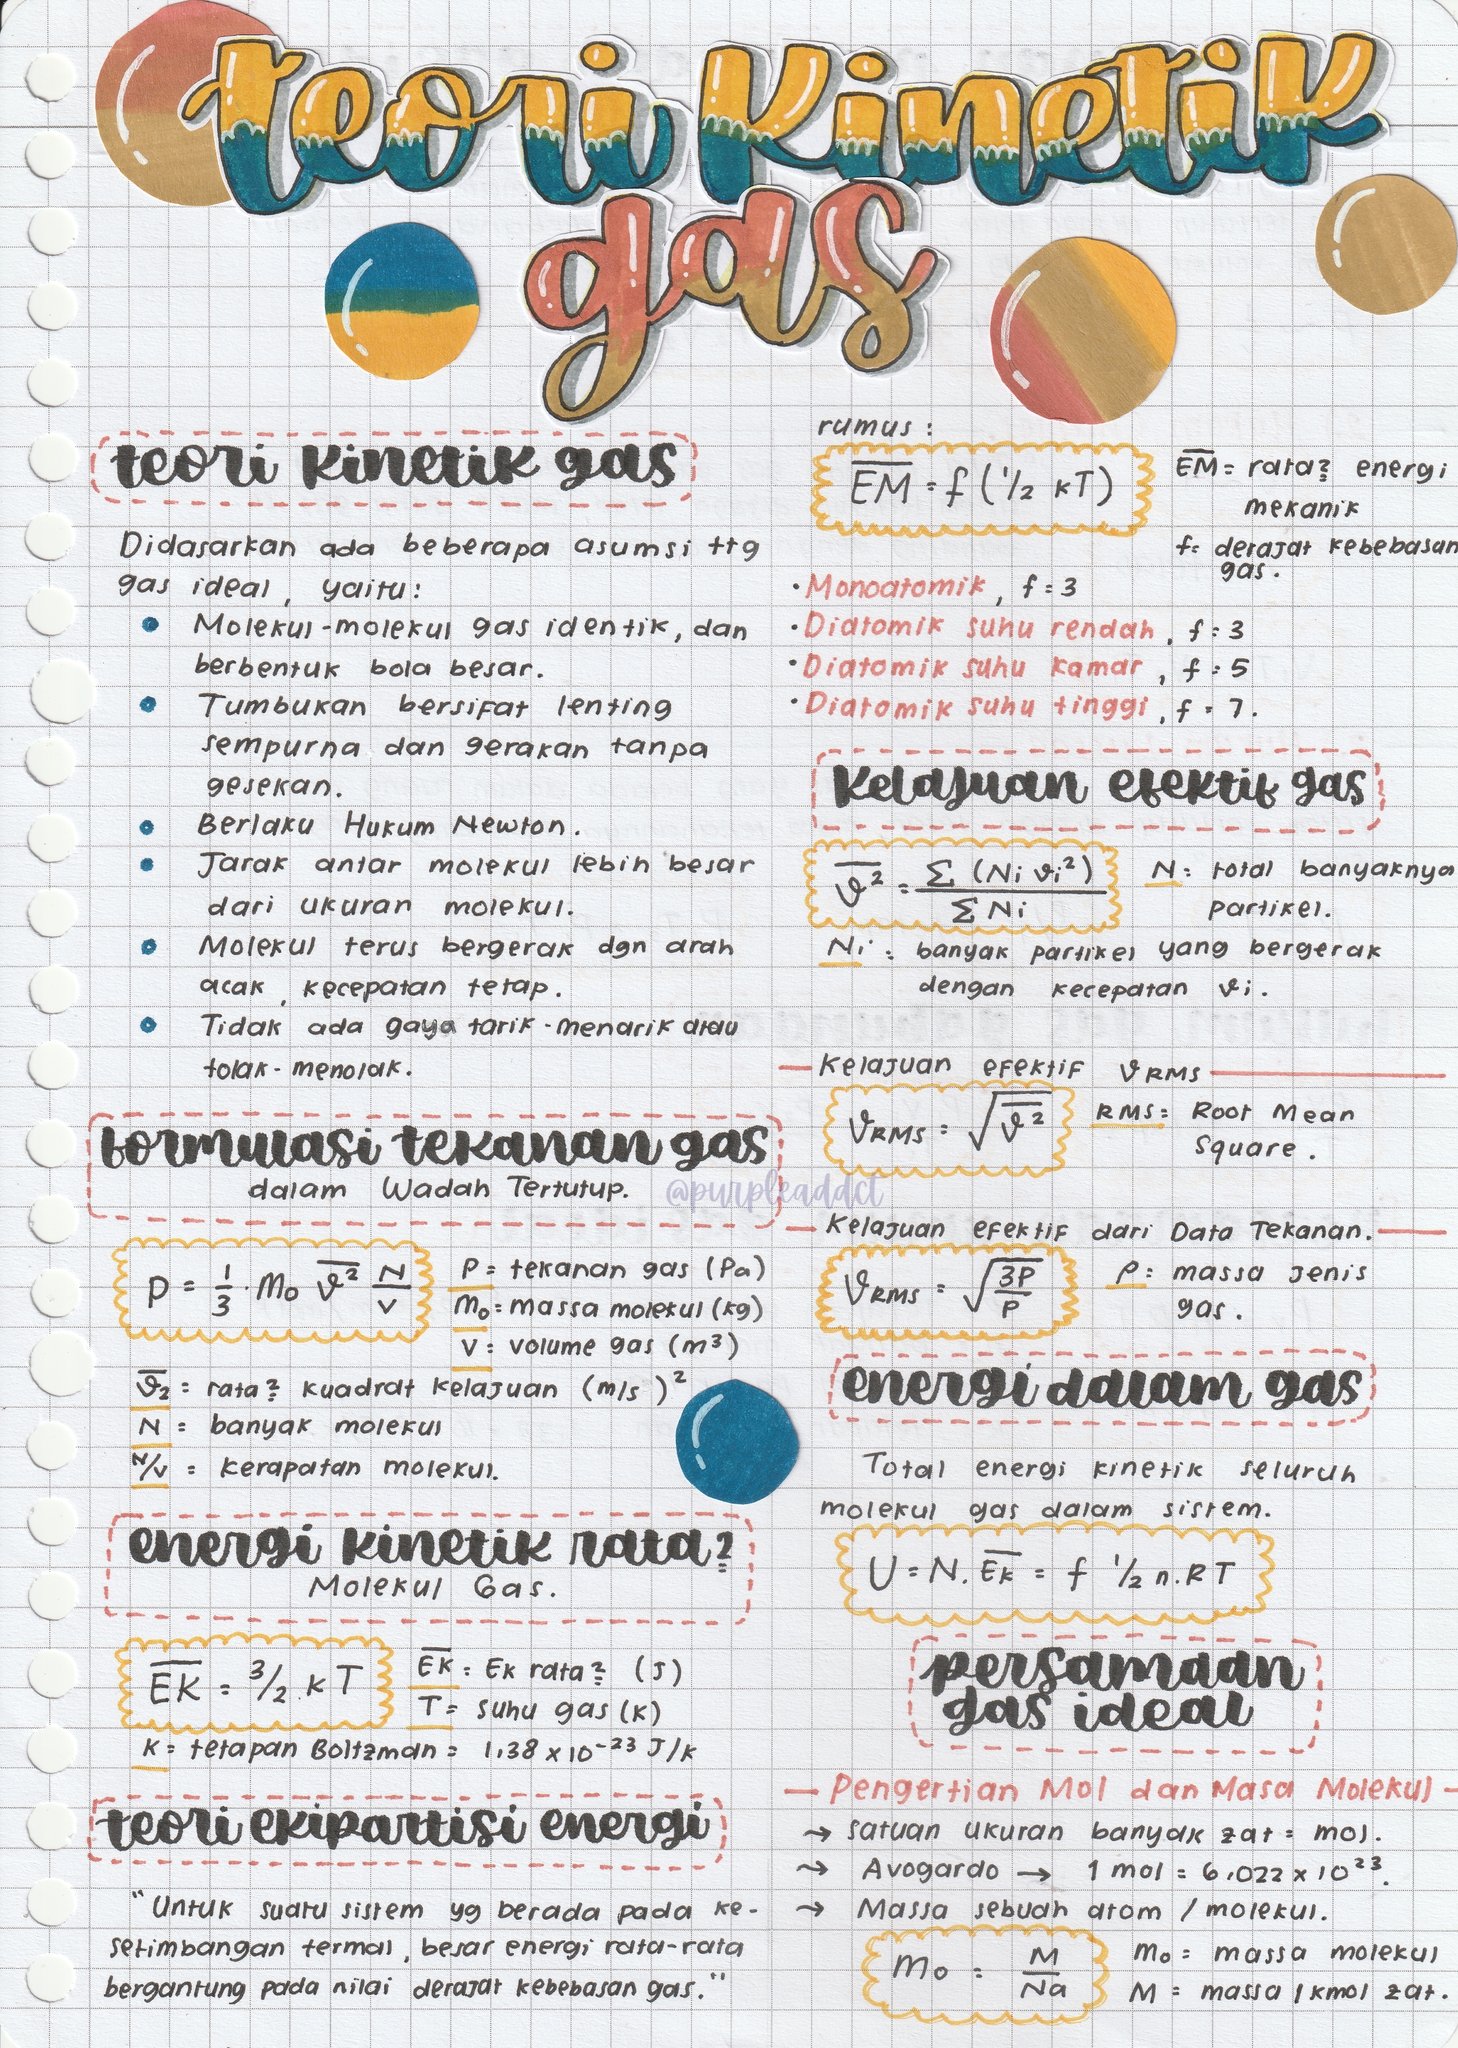 teori kinetik
gas
teori kinetik gas
Didasarkan ada beberapa asumsi ttg
gas ideal, yaitu:
• Molekul-molekul gas identik, dan
berbentuk bola besar.
• Tumbukan bersifat lenting
sempurna dan gerakan tanpa
gesekan.
• Berlaku Hukum Newton.
• Jarak antar molekul lebih besar
dari ukuran molekul.
• Molekul terus bergerak dgn arah
acak, kecepatan tetap.
• Tidak ada gaya tarik-menarik atau
tolak-menolak.
formulasi tekanan gas
dalam Wadah Tertutup.
P = 1/3 · m₀ v̅² N/V
P = tekanan gas (Pa)
m₀ = massa molekul (kg)
V = volume gas (m³)
v̅₂ = rata² kuadrat kelajuan (m/s)²
N = banyak molekul
N/V = kerapatan molekul.
energi kinetik rata²
Molekul Gas.
E̅K̅ = 3/2 . k T
E̅K̅ = Ek rata² (J)
T = suhu gas (K)
K = tetapan Boltzman = 1,38 x 10⁻²³ J/K
teori ekipartisi energi
"Untuk suatu sistem yg berada pada ke-
setimbangan termal, besar energi rata-rata
bergantung pada nilai derajat kebebasan gas."
@purpleaddct
rumus:
E̅M̅ = f (1/2 kT)
E̅M̅ = rata² energi
mekanik
f = derajat kebebasan
gas.
• Monoatomik, f = 3
• Diatomik suhu rendah, f = 3
• Diatomik suhu kamar, f = 5
• Diatomik suhu tinggi, f = 7.
kelajuan efektif gas
v̅² = Σ (Ni vi²) / Σ Ni
N = total banyaknya
partikel.
Ni = banyak partikel yang bergerak
dengan kecepatan vi.
Kelajuan efektif vRMS
vRMS = √v̅²
RMS = Root Mean
Square.
Kelajuan efektif dari Data Tekanan.
vRMS = √3P/ρ
ρ = massa jenis
gas.
energi dalam gas
Total energi kinetik seluruh
molekul gas dalam sistem.
U = N. E̅k̅ = f 1/2 n.RT
persamaan
gas ideal
Pengertian Mol dan Masa Molekul
→ satuan ukuran banyak zat = mol.
→ Avogardo → 1 mol = 6,022 x 10²³.
→ Massa sebuah atom / molekul.
m₀ = M/Na
m₀ = massa molekul
M = massa 1 kmol zat.